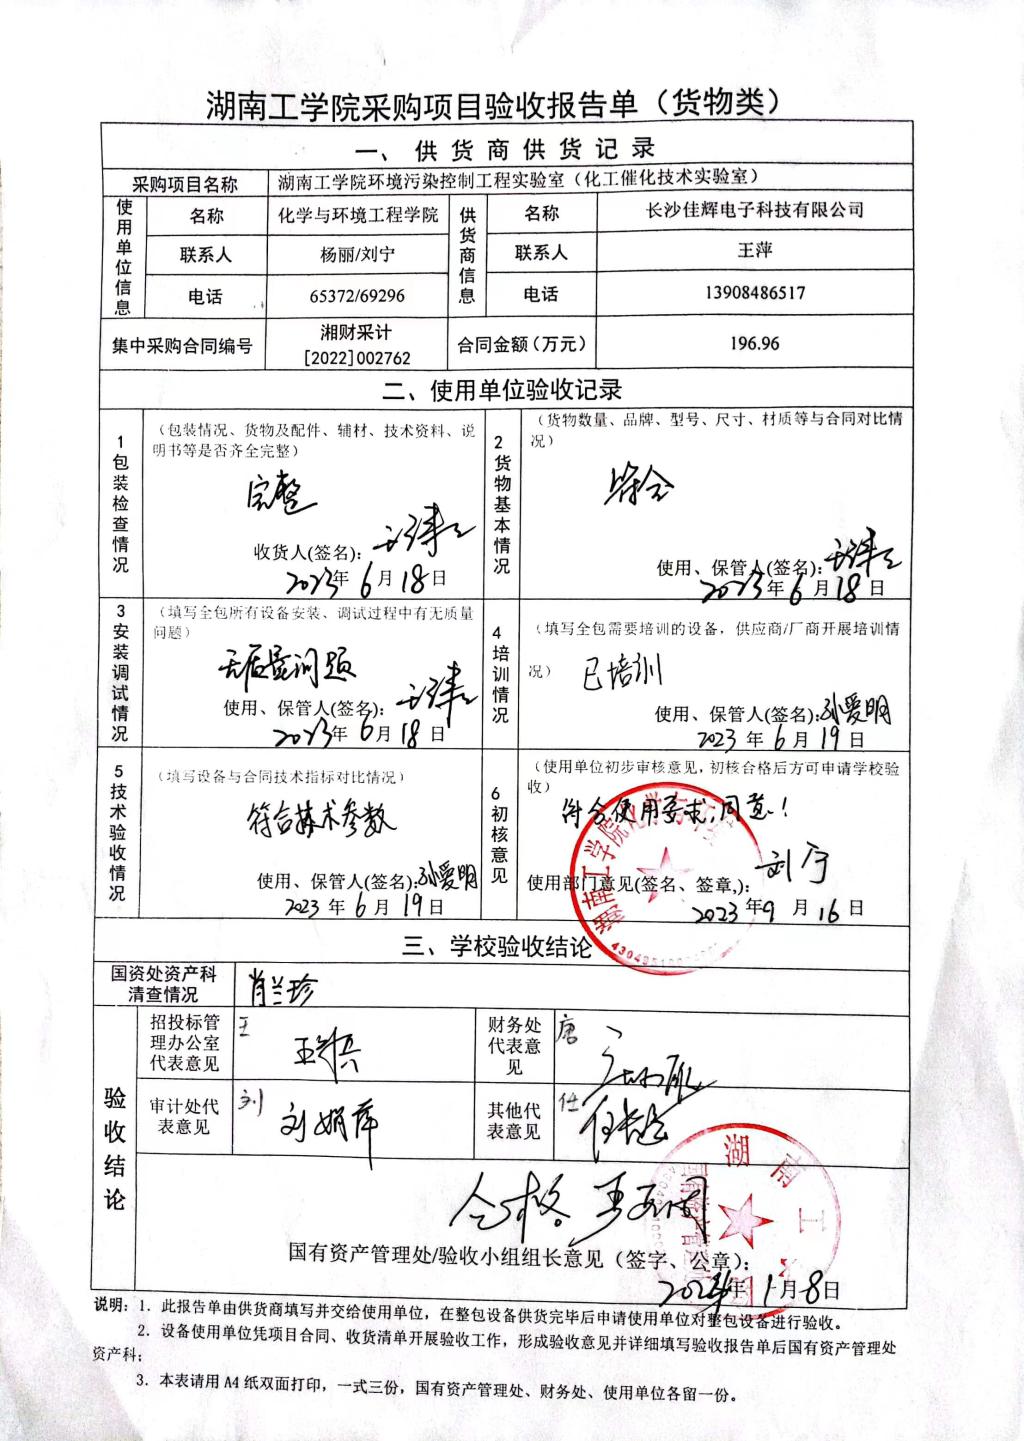 湖南工学院采购项目验收报告单（货物类）
一、供货商供货记录
采购项目名称 湖南工学院环境污染控制工程实验室（化工催化技术实验室）
使用单位信息 名称 化学与环境工程学院 供货商信息 名称 长沙佳辉电子科技有限公司
联系人 杨丽/刘宁 联系人 王萍
电话 65372/69296 电话 13908486517
集中采购合同编号 湘财采计
[2022]002762 合同金额（万元） 196.96
二、使用单位验收记录
1包装检查情况
（包装情况、货物及配件、辅材、技术资料、说
明书等是否齐全完整）
完整
收货人(签名):
2023年6月18日
2货物基本情况
（货物数量、品牌、型号、尺寸、材质等与合同对比情
况）
符合
使用、保管人(签名):
2023年6月18日
3安装调试情况
（填写全包所有设备安装、调试过程中有无质量
问题）
无质量问题
使用、保管人(签名):
2023年6月18日
4培训情况
（填写全包需要培训的设备，供应商/厂商开展培训情
况）
已培训
使用、保管人(签名):孙爱明
2023年6月19日
5技术验收情况
（填写设备与合同技术指标对比情况）
符合技术参数
使用、保管人(签名):孙爱明
2023年6月19日
6初核意见
（使用单位初步审核意见，初核合格后方可申请学校验
收）
符合使用要求,同意!
使用部门意见(签名、签章,): 刘宁
2023年9月16日
湖南工学院化学与环
三、学校验收结论
国资处资产科
清查情况 肖兰珍
验收结论
招投标管
理办公室
代表意见 王
财务处
代表意
见 唐
审计处代
表意见 刘 刘娟萍
其他代
表意见 任
合格。
国有资产管理处/验收小组组长意见（签字、公章）:
2024年1月8日
湖南工
说明：1．此报告单由供货商填写并交给使用单位，在整包设备供货完毕后申请使用单位对整包设备进行验收。
2．设备使用单位凭项目合同、收货清单开展验收工作，形成验收意见并详细填写验收报告单后国有资产管理处
资产科；
3．本表请用 A4 纸双面打印，一式三份，国有资产管理处、财务处、使用单位各留一份。